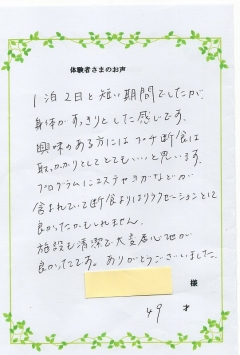 体験者さまのお声
1泊2日と短い期間でしたが、
身体がすっきりとした感じです。
興味のある方にはプチ断食は
取っかかりとしてとてもいいと思います。
プログラムにエステやヨガなどが
含まれていて断食よりはリラクゼーションとして
良かったかもしれません。
施設も清潔で大変居心地が
良かったです。ありがとうございました。
様
49 才